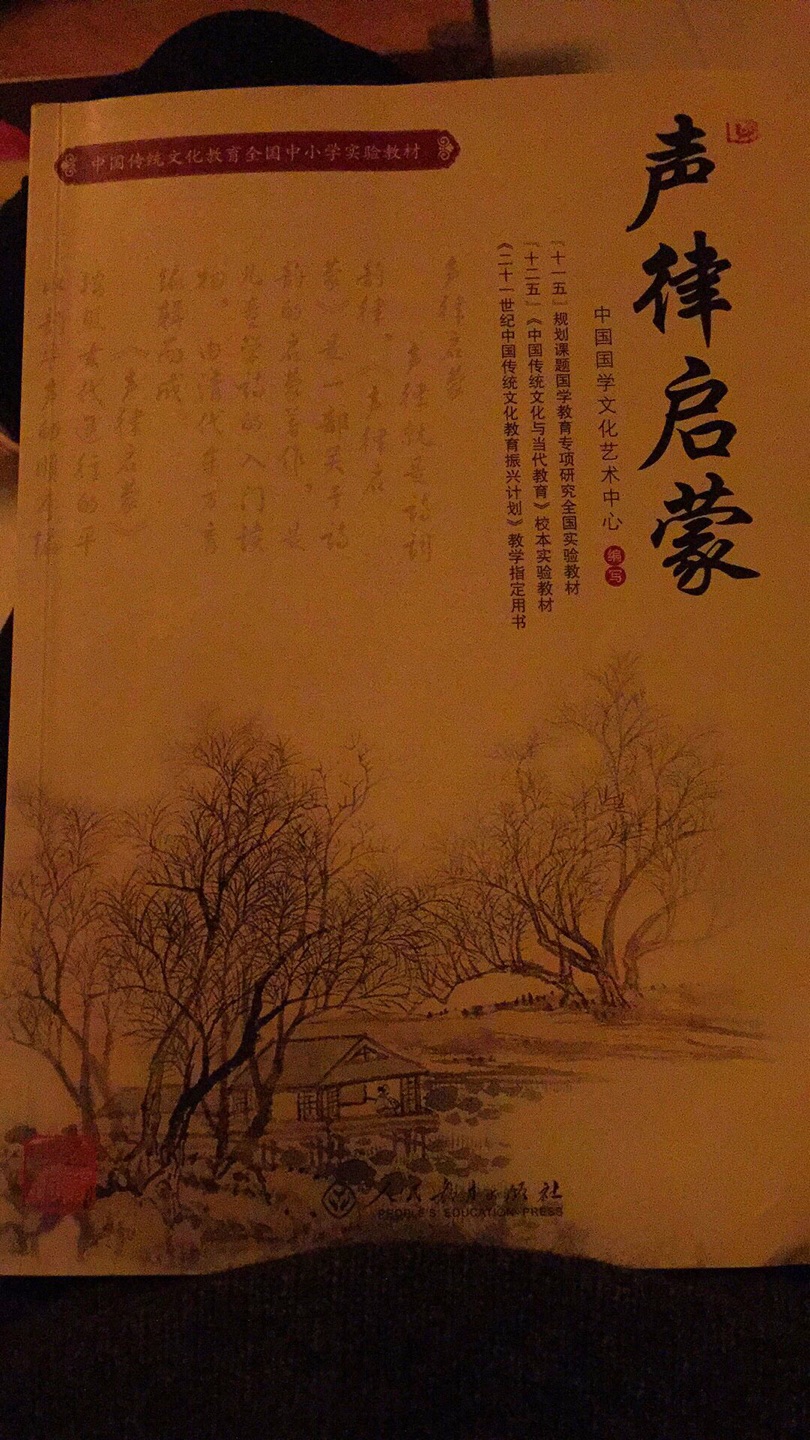 中国传统文化教育全国中小学实验教材
声律启蒙
中国国学文化艺术中心
编写
『十一五』规划课题国学教育专项研究全国实验教材
『十二五』《中国传统文化与当代教育》校本实验教材
《二十一世纪中国传统文化教育振兴计划》教学指定用书
声律启蒙
声律就是诗词
韵律。《声律启
蒙》是一部关于诗
韵的启蒙著作，也
儿童学诗的入门读
物。由清代车万育
编辑而成。
《声律启蒙》
按照古代通行的平
人民教育出版社
PEOPLE'S EDUCATION PRESS